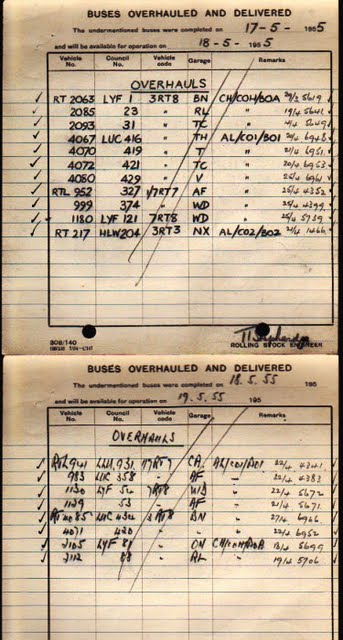 BUSES OVERHAULED AND DELIVERED
The undermentioned buses were completed on 17-5- 1955
and will be available for operation on 18-5- 1955
Vehicle No. Council No. Type Garage Remarks
OVERHAULS
✓ RT 2063 LYF 1 3RT8 BN CH/COH/BOA 20/2 5619 ✓
✓ 2085 23 " RL " 19/4 5641 ✓
✓ 2093 31 " TC " 14/4 5649 ✓
✓ 4067 LUC 416 " TH AL/CO1/BO1 20/4 6948 ✓
✓ 4070 419 " T " 21/4 6951 ✓
✓ 4072 421 " TC " 20/4 6953 ✓
✓ 4080 429 " V " 25/4 6961 ✓
✓ RTL 952 327 1/7RT7 AF " 25/4 4352 ✓
✓ 999 374 " WD " 25/4 4399 ✓
✓ 1180 LYF 121 7RT8 WD " 25/4 5739 ✓
✓ RT 217 HLW 204 3RT3 NX AL/CO2/BO2 21/4 1466 ✓
808/140
ROLLING STOCK ENGINEER
BUSES OVERHAULED AND DELIVERED
The undermentioned buses were completed on 18.5.55 195
and will be available for operation on 19.5.55 195
Vehicle No. Council No. Type Garage Remarks
OVERHAULS
✓ RTL 941 931 CA AL/CO1/BO1 22/4 4341 ✓
✓ 983 LUC 358 " AF " 22/4 4383 ✓
✓ 1130 LYF 54 7RT8 WD " 22/4 5672 ✓
✓ 1129 53 " AF " 21/4 5671 ✓
✓ RT 4085 LUC 434 3RT8 BN " 27/4 6966 ✓
✓ 4071 420 " " " 22/4 6952 ✓
✓ 2105 LYF 81 " CH/COH/BOA 13/4 5699 ✓
✓ 2112 88 " RL " 19/4 5706 ✓